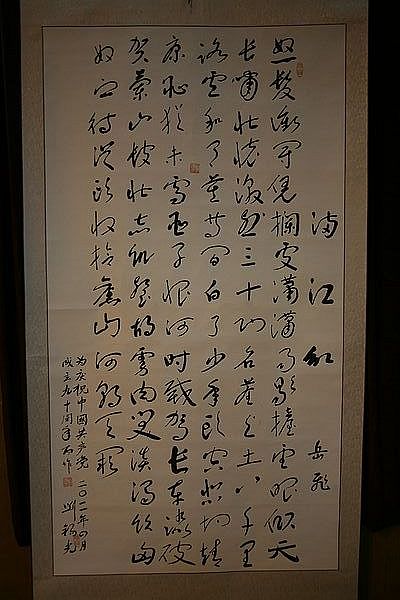 满江红 岳飞
怒髮衝冠凭欄处潇潇雨歇擡望眼仰天
长啸壮怀激烈三十功名尘与土八千里
路雲和月莫等闲白了少年头空悲切靖
康耻犹未雪臣子恨何时灭驾长车踏破
贺蘭山缺壮志饥餐胡虏肉笑谈渴饮匈
奴血待従头收拾舊山河朝天阙
为庆祝中國共产党
成立九十周年而作
二〇一一年四月